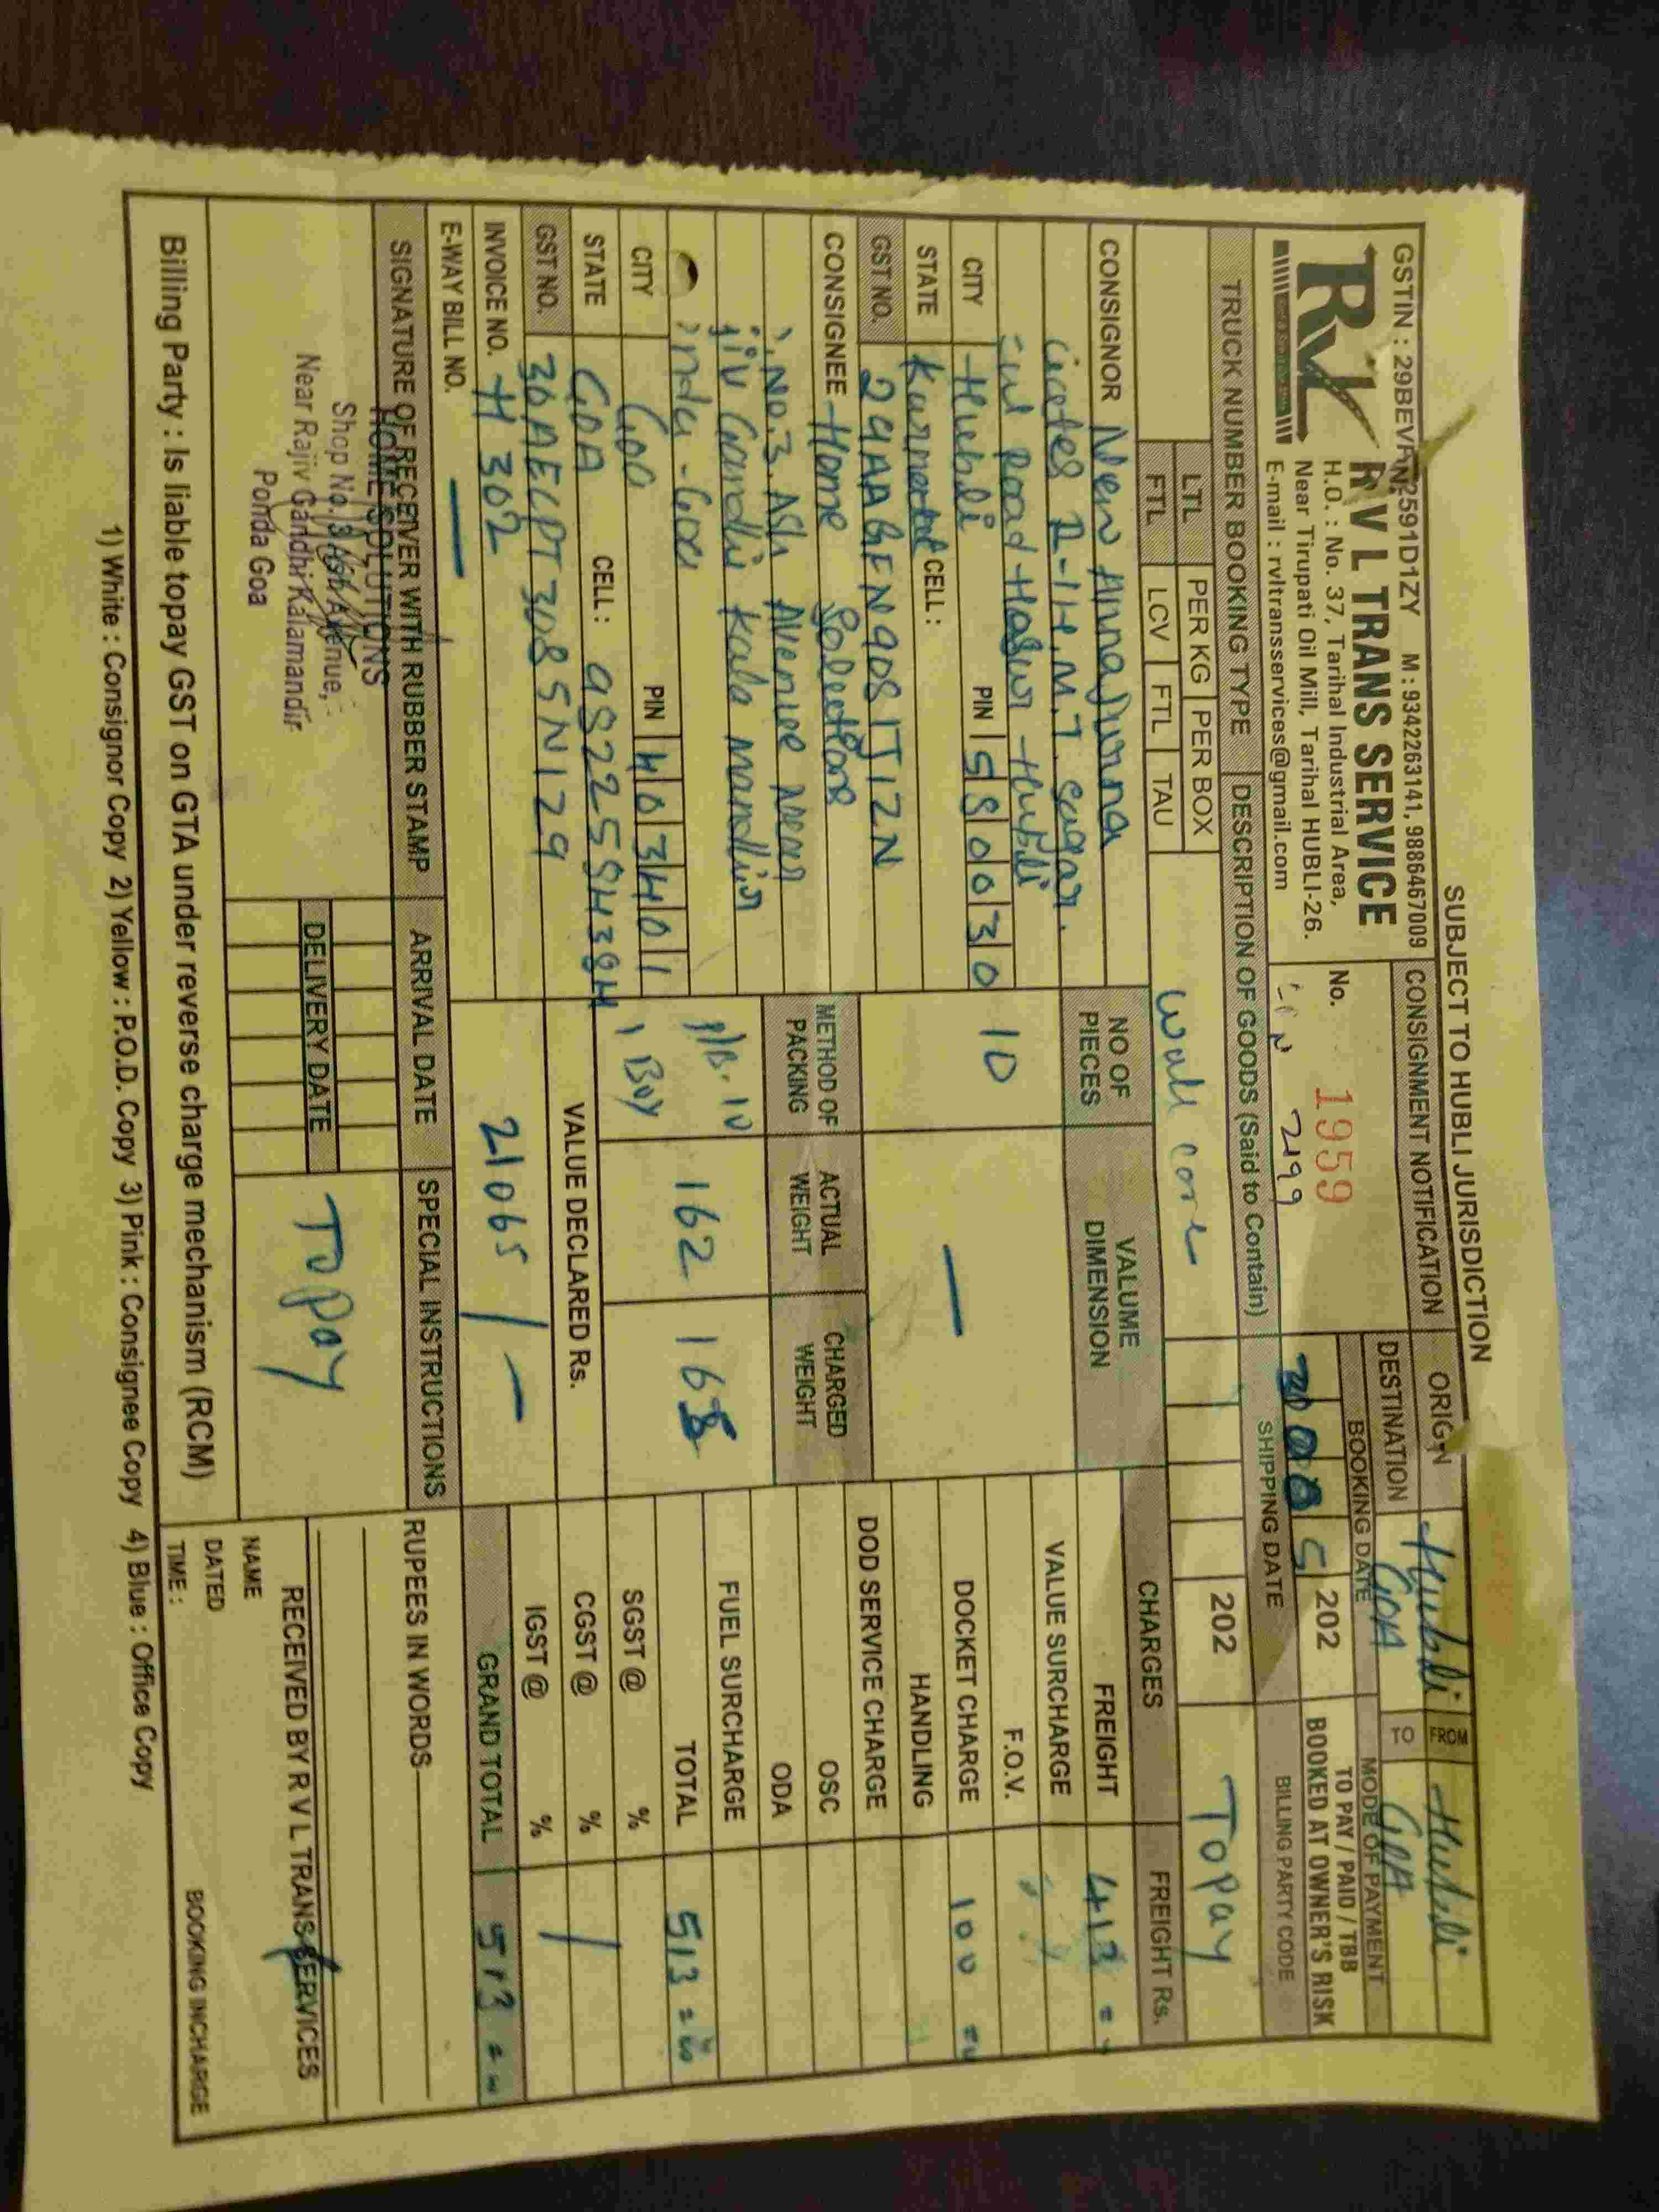 SUBJECT TO HUBLI JURISDICTION
M : 9342263141, 9886467009
R V L TRANS SERVICE
H.O. : No. 37, Tarihal Industrial Area,
Near Tirupati Oil Mill, Tarihal HUBLI-26.
E-mail : rvltransservices@gmail.com
CONSIGNMENT NOTIFICATION
No. 1959
2199
ORIGN Hubli FROM Hubli
DESTINATION GOA TO GOA
BOOKING DATE 202
SHIPPING DATE 202
MODE OF PAYMENT
TO PAY / PAID / TBB
BOOKED AT OWNER'S RISK
BILLING PARTY CODE
To Pay
TRUCK NUMBER BOOKING TYPE DESCRIPTION OF GOODS (Said to Contain)
LTL PER KG PER BOX
FTL LCV FTL TAU
wall care
CONSIGNOR New Annapurna
Hosur Hubli
CITY Hubli PIN 580030
STATE CELL :
GST NO.
CONSIGNEE Home
No.3. Ash Avenue near
Gandhi kala mandir
Goa
CITY Goa PIN 403401
STATE GOA CELL :
GST NO.
INVOICE NO. H 302
E-WAY BILL NO. —
NO OF PIECES
10
VALUME DIMENSION
—
METHOD OF PACKING
ACTUAL WEIGHT
162
CHARGED WEIGHT
VALUE DECLARED Rs.
21065/-
CHARGES FREIGHT Rs.
FREIGHT 413
VALUE SURCHARGE
F.O.V.
DOCKET CHARGE 100
HANDLING
DOD SERVICE CHARGE
OSC
ODA
FUEL SURCHARGE
TOTAL 513
SGST @ %
CGST @ %
IGST @ %
GRAND TOTAL 513
SIGNATURE OF RECEIVER WITH RUBBER STAMP
HOME SOLUTIONS
Shop No. 3 Ash Avenue,
Near Rajiv Gandhi Kalamandir
Ponda Goa
ARRIVAL DATE
DELIVERY DATE
SPECIAL INSTRUCTIONS
To Pay
RUPEES IN WORDS
RECEIVED BY R V L TRANS SERVICES
NAME
DATED
TIME :
BOOKING INCHARGE
Billing Party : Is liable topay GST on GTA under reverse charge mechanism (RCM)
1) White : Consignor Copy 2) Yellow : P.O.D. Copy 3) Pink : Consignee Copy 4) Blue : Office Copy